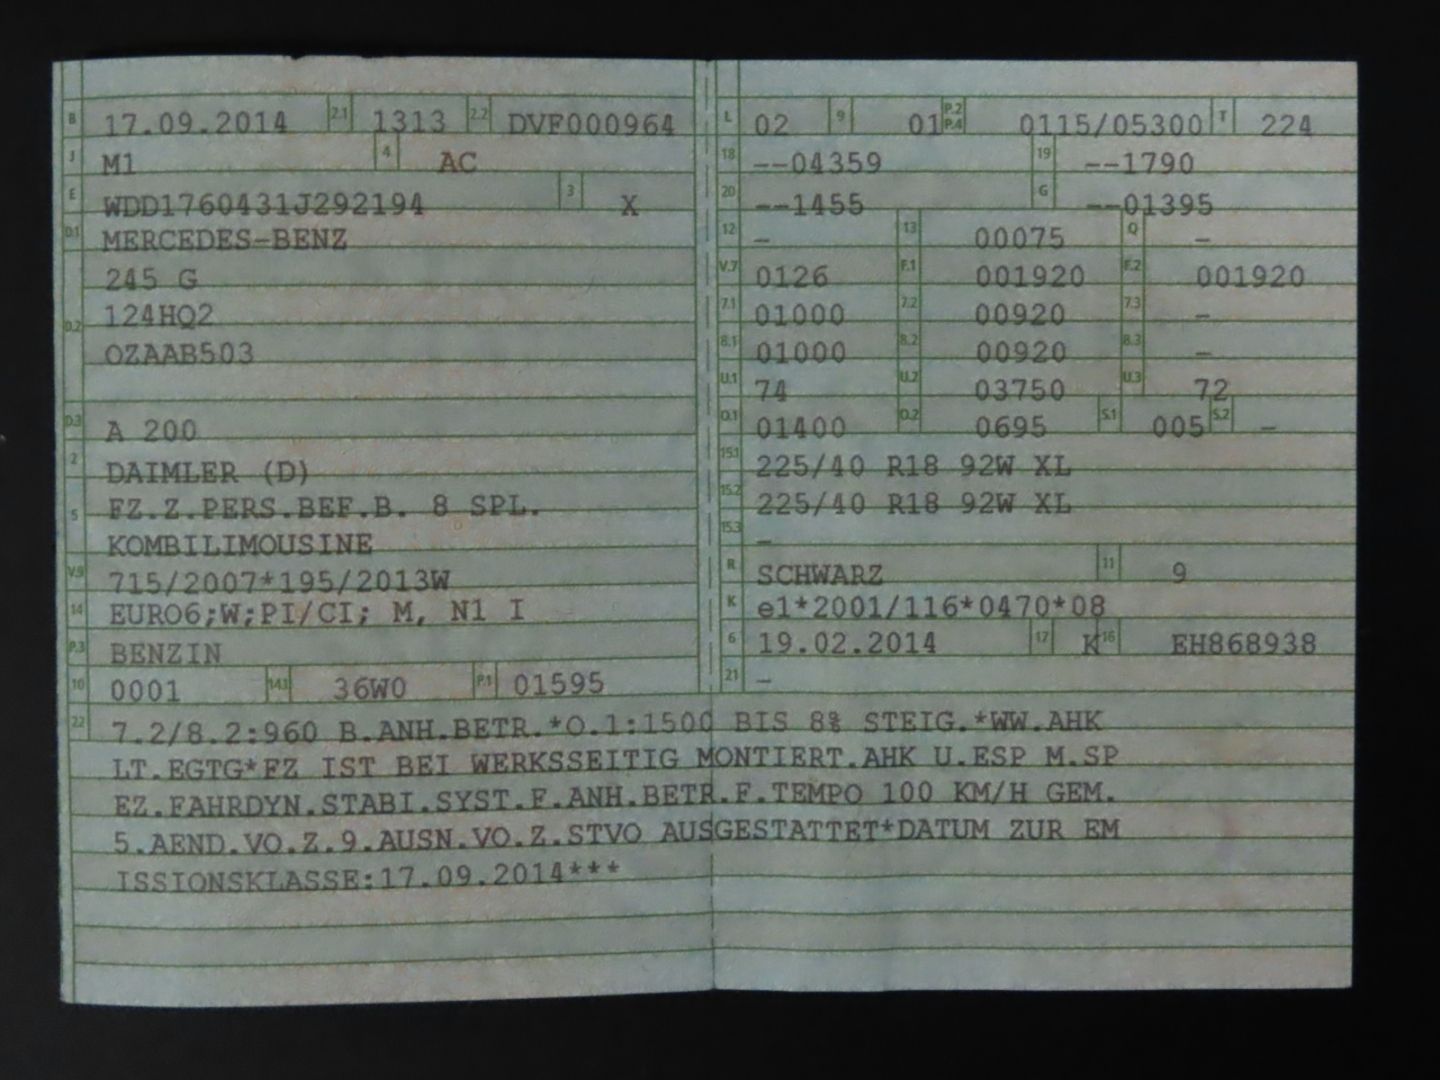 B 17.09.2014 2.1 1313 2.2 DVF000964
J M1 4 AC
E WDD1760431J292194 3 X
D.1 MERCEDES-BENZ
245 G
D.2 124HQ2
OZAAB503
D.3 A 200
2 DAIMLER (D)
5 FZ.Z.PERS.BEF.B. 8 SPL.
KOMBILIMOUSINE
V.9 715/2007*195/2013W
14 EURO6;W;PI/CI; M, N1 I
P.3 BENZIN
10 0001 14.1 36W0 P.1 01595
L 02 9 01 P.2 P.4 0115/05300 T 224
18 --04359 19 --1790
20 --1455 G --01395
12 - 13 00075 Q -
V.7 0126 F.1 001920 F.2 001920
7.1 01000 7.2 00920 7.3 -
8.1 01000 8.2 00920 8.3 -
U.1 74 U.2 03750 U.3 72
O.1 01400 O.2 0695 S.1 005 S.2 -
15.1 225/40 R18 92W XL
15.2 225/40 R18 92W XL
15.3 -
R SCHWARZ 11 9
K e1*2001/116*0470*08
6 19.02.2014 17 K 16 EH868938
21 -
22 7.2/8.2:960 B.ANH.BETR.*O.1:1500 BIS 8% STEIG.*WW.AHK
LT.EGTG*FZ IST BEI WERKSSEITIG MONTIERT.AHK U.ESP M.SP
EZ.FAHRDYN.STABI.SYST.F.ANH.BETR.F.TEMPO 100 KM/H GEM.
5.AEND.VO.Z.9.AUSN.VO.Z.STVO AUSGESTATTET*DATUM ZUR EM
ISSIONSKLASSE:17.09.2014***